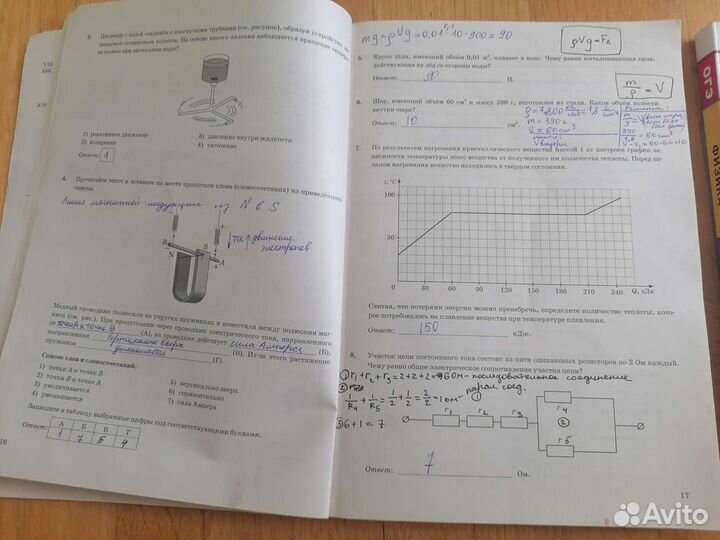 3. Цилиндр с водой соединён с изогнутыми трубками (см. рисунок), образуя устройство, на-
зываемое сегнеровым колесом. На основе какого явления наблюдается вращение сегнеро-
ва колеса при вытекании воды?
1) реактивное движение
2) испарение
3) давление внутри жидкости
4) тяготение
Ответ: 1
4. Прочитайте текст и вставьте на место пропусков слова (словосочетания) из приведённого
списка.
Линии магнитной индукции из N в S
B
S
N
A
+
↓ ток ↑ движение
электронов
Медный проводник подвесили на упругих пружинках и поместили между полюсами маг-
нита (см. рис.). При пропускании через проводник электрического тока, направленного
от точки A к точке B (А), на проводник действует сила Ампера (Б),
направленная вертикально вверх (В). Из-за этого растяжение
пружинок уменьшается (Г).
Список слов и словосочетаний:
1) точки A к точке B
2) точки B к точке A
3) увеличивается
4) уменьшается
5) вертикально вверх
6) горизонтально
7) сила Ампера
Запишите в таблицу выбранные цифры под соответствующими буквами.
Ответ:
А Б В Г
1 7 5 4
16
mg = ρVg = 0,01·10·900 = 90
ρVg = F_A
5. Кусок льда, имеющий объём 0,01 м³, плавает в воде. Чему равна выталкивающая сила,
действующая на лёд со стороны воды?
Ответ: 90 Н.
m/ρ = V
6. Шар, имеющий объём 60 см³ и массу 390 г, изготовлен из стали. Каков объём полости
внутри шара?
Ответ: 10 см³.
m = 390 г
V = 60 см³
390/7,8 = 50 см³
V - V₁ = 60-50=10
7. По результатам нагревания кристаллического вещества массой 1 кг построен график за-
висимости температуры этого вещества от полученного им количества теплоты. Перед на-
чалом нагревания вещество находилось в твёрдом состоянии.
t, °C
160
120
80
40
0 30 60 90 120 150 180 210 240 Q, кДж
Считая, что потерями энергии можно пренебречь, определите количество теплоты, кото-
рое потребовалось на плавление вещества при температуре плавления.
Ответ: 150 кДж.
8. Участок цепи постоянного тока состоит из пяти одинаковых резисторов по 2 Ом каждый.
Чему равно общее электрическое сопротивление участка цепи?
① r₁+r₂+r₃=2+2+2=6 Ом - последовательное соединение
② парал соед.
1/R₄ + 1/R₅ = 1/2 + 1/2 = 2/2 = 1 Ом
③ 6+1 = 7
r₁ r₂ r₃ r₄ r₅
①
②
Ответ: 7 Ом.
17
ОГЭ
Avito